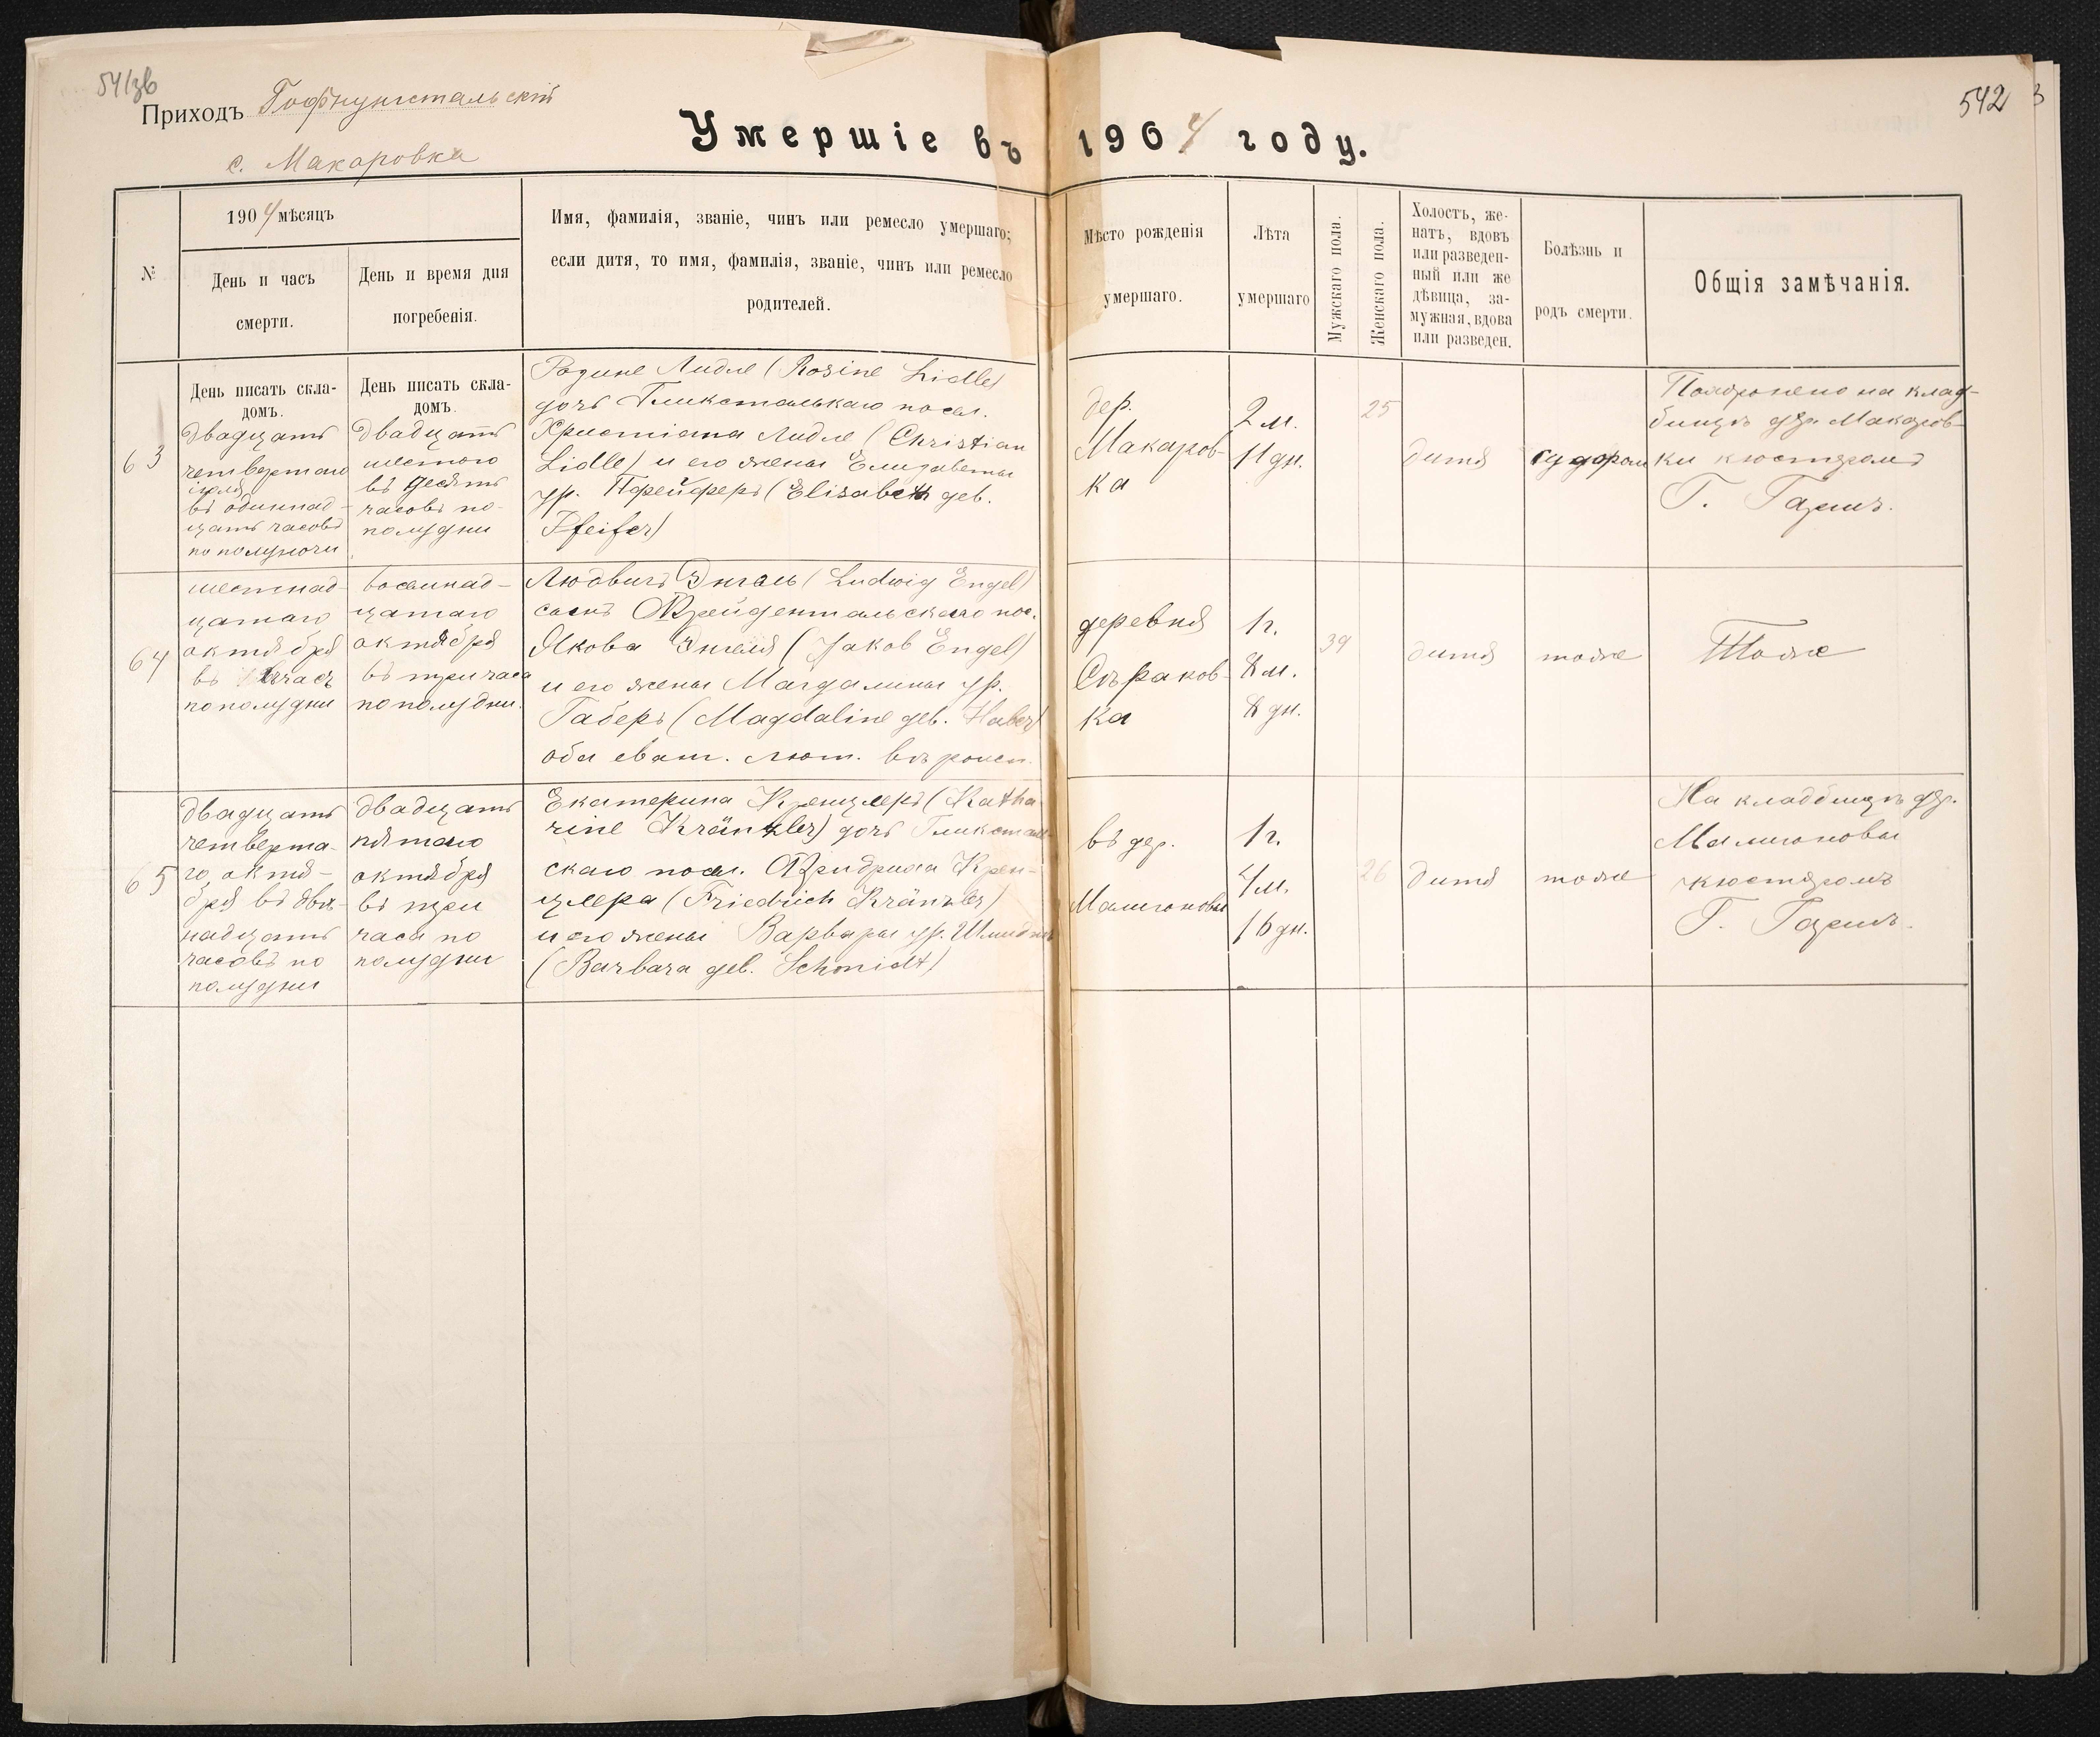 541зв
542
Приходъ Гофнунгстальскій
с. Макаровка
Умершіе въ 1904 году.
№
1904 мѣсяцъ
День и часъ
смерти.
День и время дня
погребенія.
Имя, фамилія, званіе, чинъ или ремесло умершаго;
если дитя, то имя, фамилія, званіе, чинъ или ремесло
родителей.
Мѣсто рожденія
умершаго.
Лѣта
умершаго
Мужскаго пола.
Женскаго пола.
Холостъ, же-
натъ, вдовъ
или разведен-
ный или же
дѣвица, за-
мужная, вдова
или разведен.
Болѣзнь и
родъ смерти.
Общія замѣчанія.
63
День писать скла-
домъ.
двадцать
четвертаго
іюля
въ одиннад-
цать часовъ
по полуночи
День писать скла-
домъ.
двадцать
шестого
въ десять
часовъ по-
полудни
Розине Лидле (Rosine Lidle)
дочь Глюкстальскаго посел.
Христіана Лидле (Christian
Lidle) и его жены Елизаветы
ур. Пфейферъ (Elisabeth geb.
Pfeifer)
дер.
Макаров-
ка
2 м.
11 дн.
25
дитя
судороги
Похоронено на клад-
бищѣ дер. Макаров-
ки кюстеромъ
Г.
64
шестнад-
цатаго
октября
въ часъ
по полудни
восемнад-
цатаго
октября
въ три часа
по полудни.
Людвигъ Энгель (Ludwig Engel)
сынъ Фрейдентальскаго пос.
Якова Энгеля (Jakob Engel)
и его жены Магдалины ур.
Габеръ (Magdaline geb. Haber)
оба еванг. лют. вѣроисп.
деревня
Сѣраков-
ка
1 г.
8 м.
8 дн.
39
дитя
тоже
Тоже
65
двадцать
четверта-
го октя-
бря въ двѣ-
надцать
часовъ по
полудни
двадцать
пятаго
октября
въ три
часа по
полудни
Екатерина Кренцлеръ (Katha-
rine Kränzler) дочь Глюксталь-
скаго посел. Фридриха Крен-
цлера (Friedrich Kränzler)
и его жены Варвары ур. Шмидтъ
(Barbara geb. Schmidt)
въ дер.
Малигоновы
1 г.
4 м.
16 дн.
26
дитя
тоже
На кладбищѣ дер.
Малигоновы
кюстеромъ
Г.